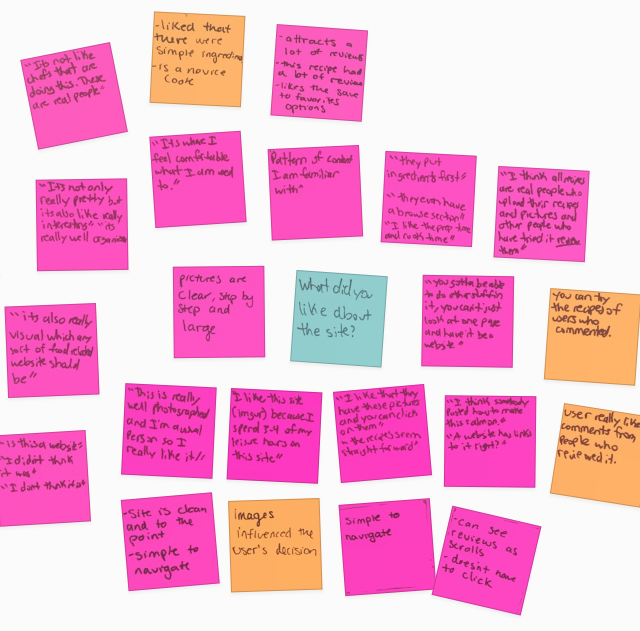 "It's not like
chefs that are
doing this. These
are real people"
-liked that
there were
simple ingredin
-is a novice
cook
- attracts a
lot of reviews
-this recipe had
a lot of reviews
-likes the save
to favorites
options
"It's not only
really pretty but
its also like really
interesting" "its
really well organized
"It's where I
feel comfortable
what I am used
to."
Pattern of
I am familiar
with"
"they put
ingredients first"
"they even have
a browse section"
"I like the prep time
and cook time"
"I think all recipes
are real people who
upload their recipes
and pictures and
other people who
have tried it review
them"
"its also really
visual which any
sort of food related
website should
be"
pictures are
clear, step by
step and
large
What did you
like about
the site?
"you gotta be able
to do other stuff in
it, you can't just
look at one page
and have it be a
website"
you can try
the recipes of
users who
commented.
"This is really
well photographed
and I'm a visual
person so I
really like it"
I like this site
(imgur) because I
spend 3-4 of my
leisure hours on
this site"
"I like that they
have these pictures
and you can click
on them"
"the recipes seem
straight forward"
"I think somebody
posted how to make
this salmon."
"A website has links
to it right?"
user really like
comments from
people who
reviewed it.
- is this a website
"I didn't think
it was"
"I dont think it is"
-Site is clean
and to the
point
-simple to
navigate
images
influenced the
user's decision
Simple to
navigate
-can see
reviews as
scrolls
- doesn't have
to click